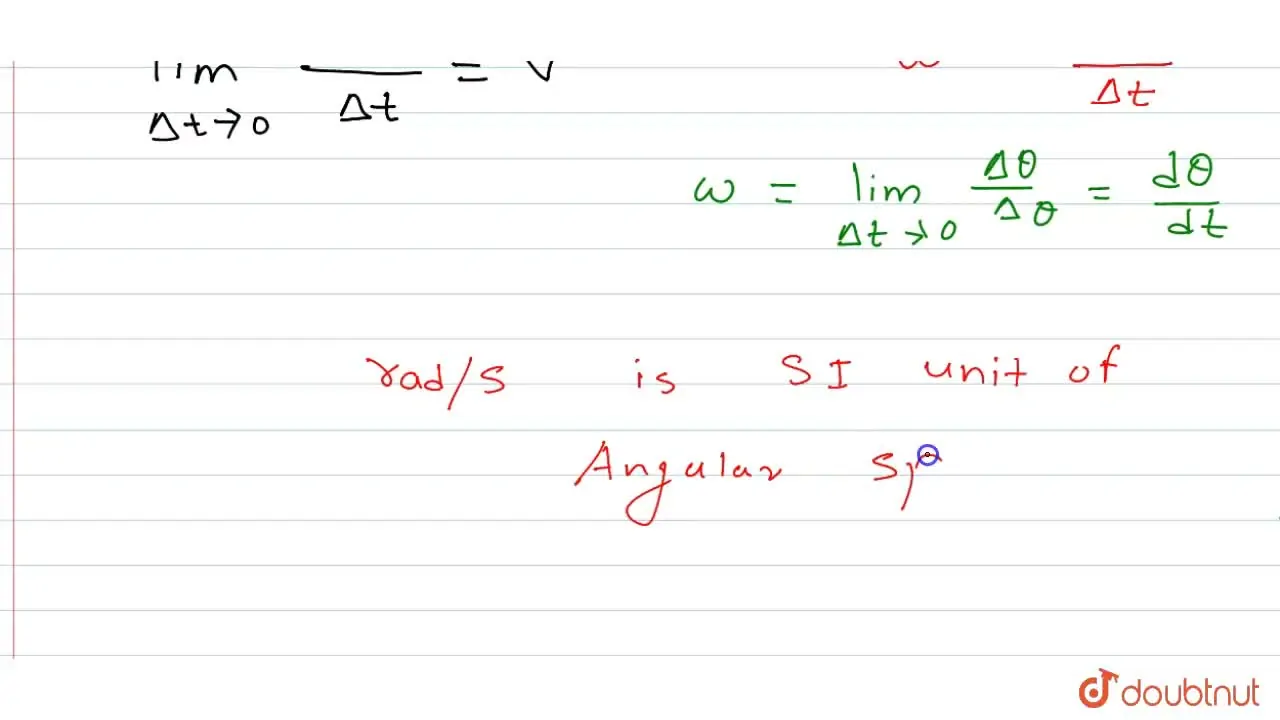 lim ――― = v
Δt
Δt→0
Δt
ω = lim Δθ/Δθ = dθ/dt
Δt→0
rad/s is SI unit of
Angular Sp
doubtnut